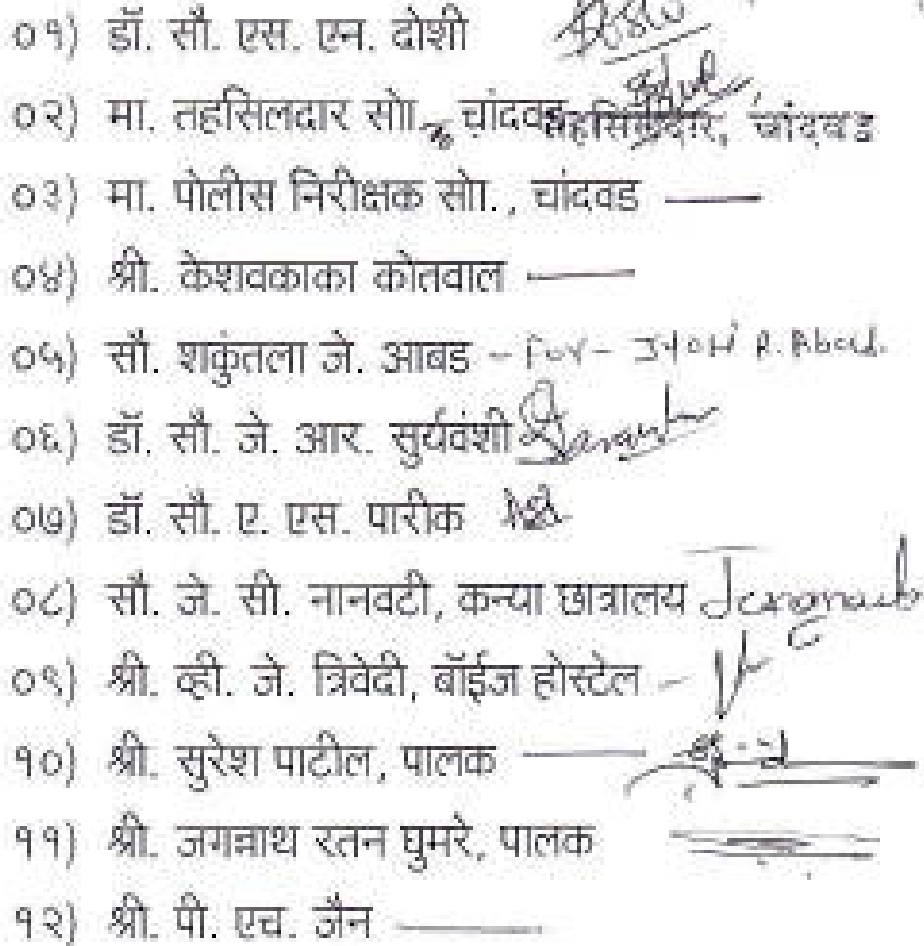 ०१) डॉ. सौ. एस. एन. दोशी
०२) मा. तहसिलदार सोा. चांदवड तहसिलदार, चांदवड
०३) मा. पोलीस निरीक्षक सोा., चांदवड
०४) श्री. केशवकाका कोतवाल
०५) सौ. शकुंतला जे. आबड - For -
०६) डॉ. सौ. जे. आर. सुर्यवंशी
०७) डॉ. सौ. ए. एस. पारीक
०८) सौ. जे. सी. नानवटी, कन्या छात्रालय
०९) श्री. व्ही. जे. त्रिवेदी, बॉईज होस्टेल -
१०) श्री. सुरेश पाटील, पालक
११) श्री. जगन्नाथ रतन घुमरे, पालक
१२) श्री. पी. एच. जैन